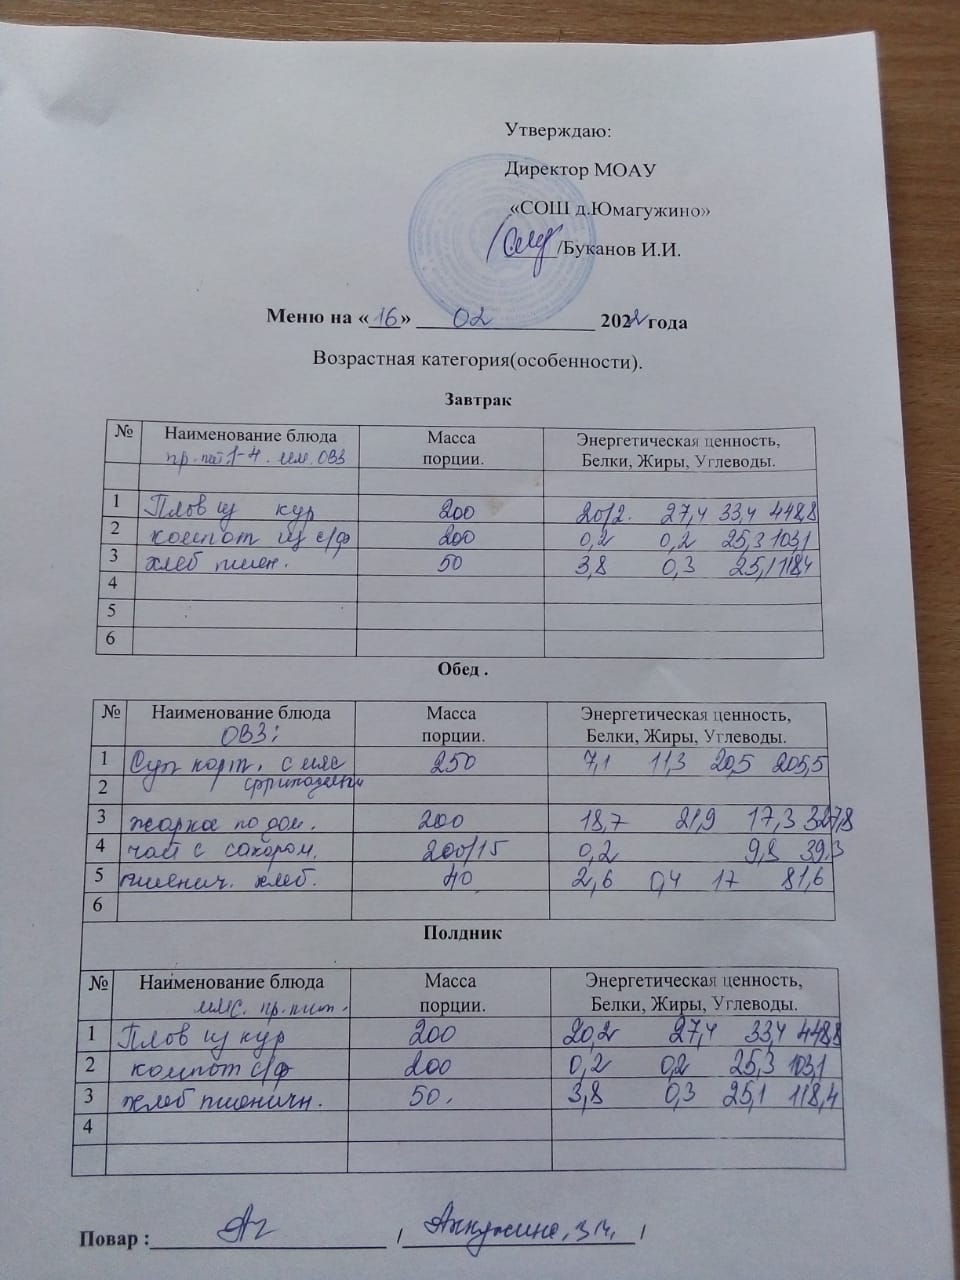 Утверждаю:
Директор МОАУ
«СОШ д.Юмагужино»
/Буканов И.И.
Меню на «16» 02 2022 года
Возрастная категория(особенности).
Завтрак
№ Наименование блюда Масса порции. Энергетическая ценность, Белки, Жиры, Углеводы.
1-4. ОВЗ
1 Плов из кур 200 20,2. 27,4 33,4 448,8
2 компот из с/ф 200 0,2 0,2 25,3 103,1
3 хлеб пшен. 50 3,8 0,3 25,1 118,4
4
5
6
Обед .
№ Наименование блюда Масса порции. Энергетическая ценность, Белки, Жиры, Углеводы.
ОВЗ:
1 Суп карт. с мяс 250 7,1 11,3 20,5 205,5
2 фрикадельк
3 жаркое по дом. 200 18,7 21,9 17,3 327,8
4 чай с сахаром. 200/15 0,2 39,3
5 пшенич. хлеб. 40 2,6 0,4 17 81,6
6
Полдник
№ Наименование блюда Масса порции. Энергетическая ценность, Белки, Жиры, Углеводы.
1 Плов из кур 200 20,2 27,4 33,4 448,8
2 компот с/ф 200 0,2 0,2 25,3 103,1
3 хлеб пшеничн. 50. 3,8 0,3 25,1 118,4
4
Повар : / /